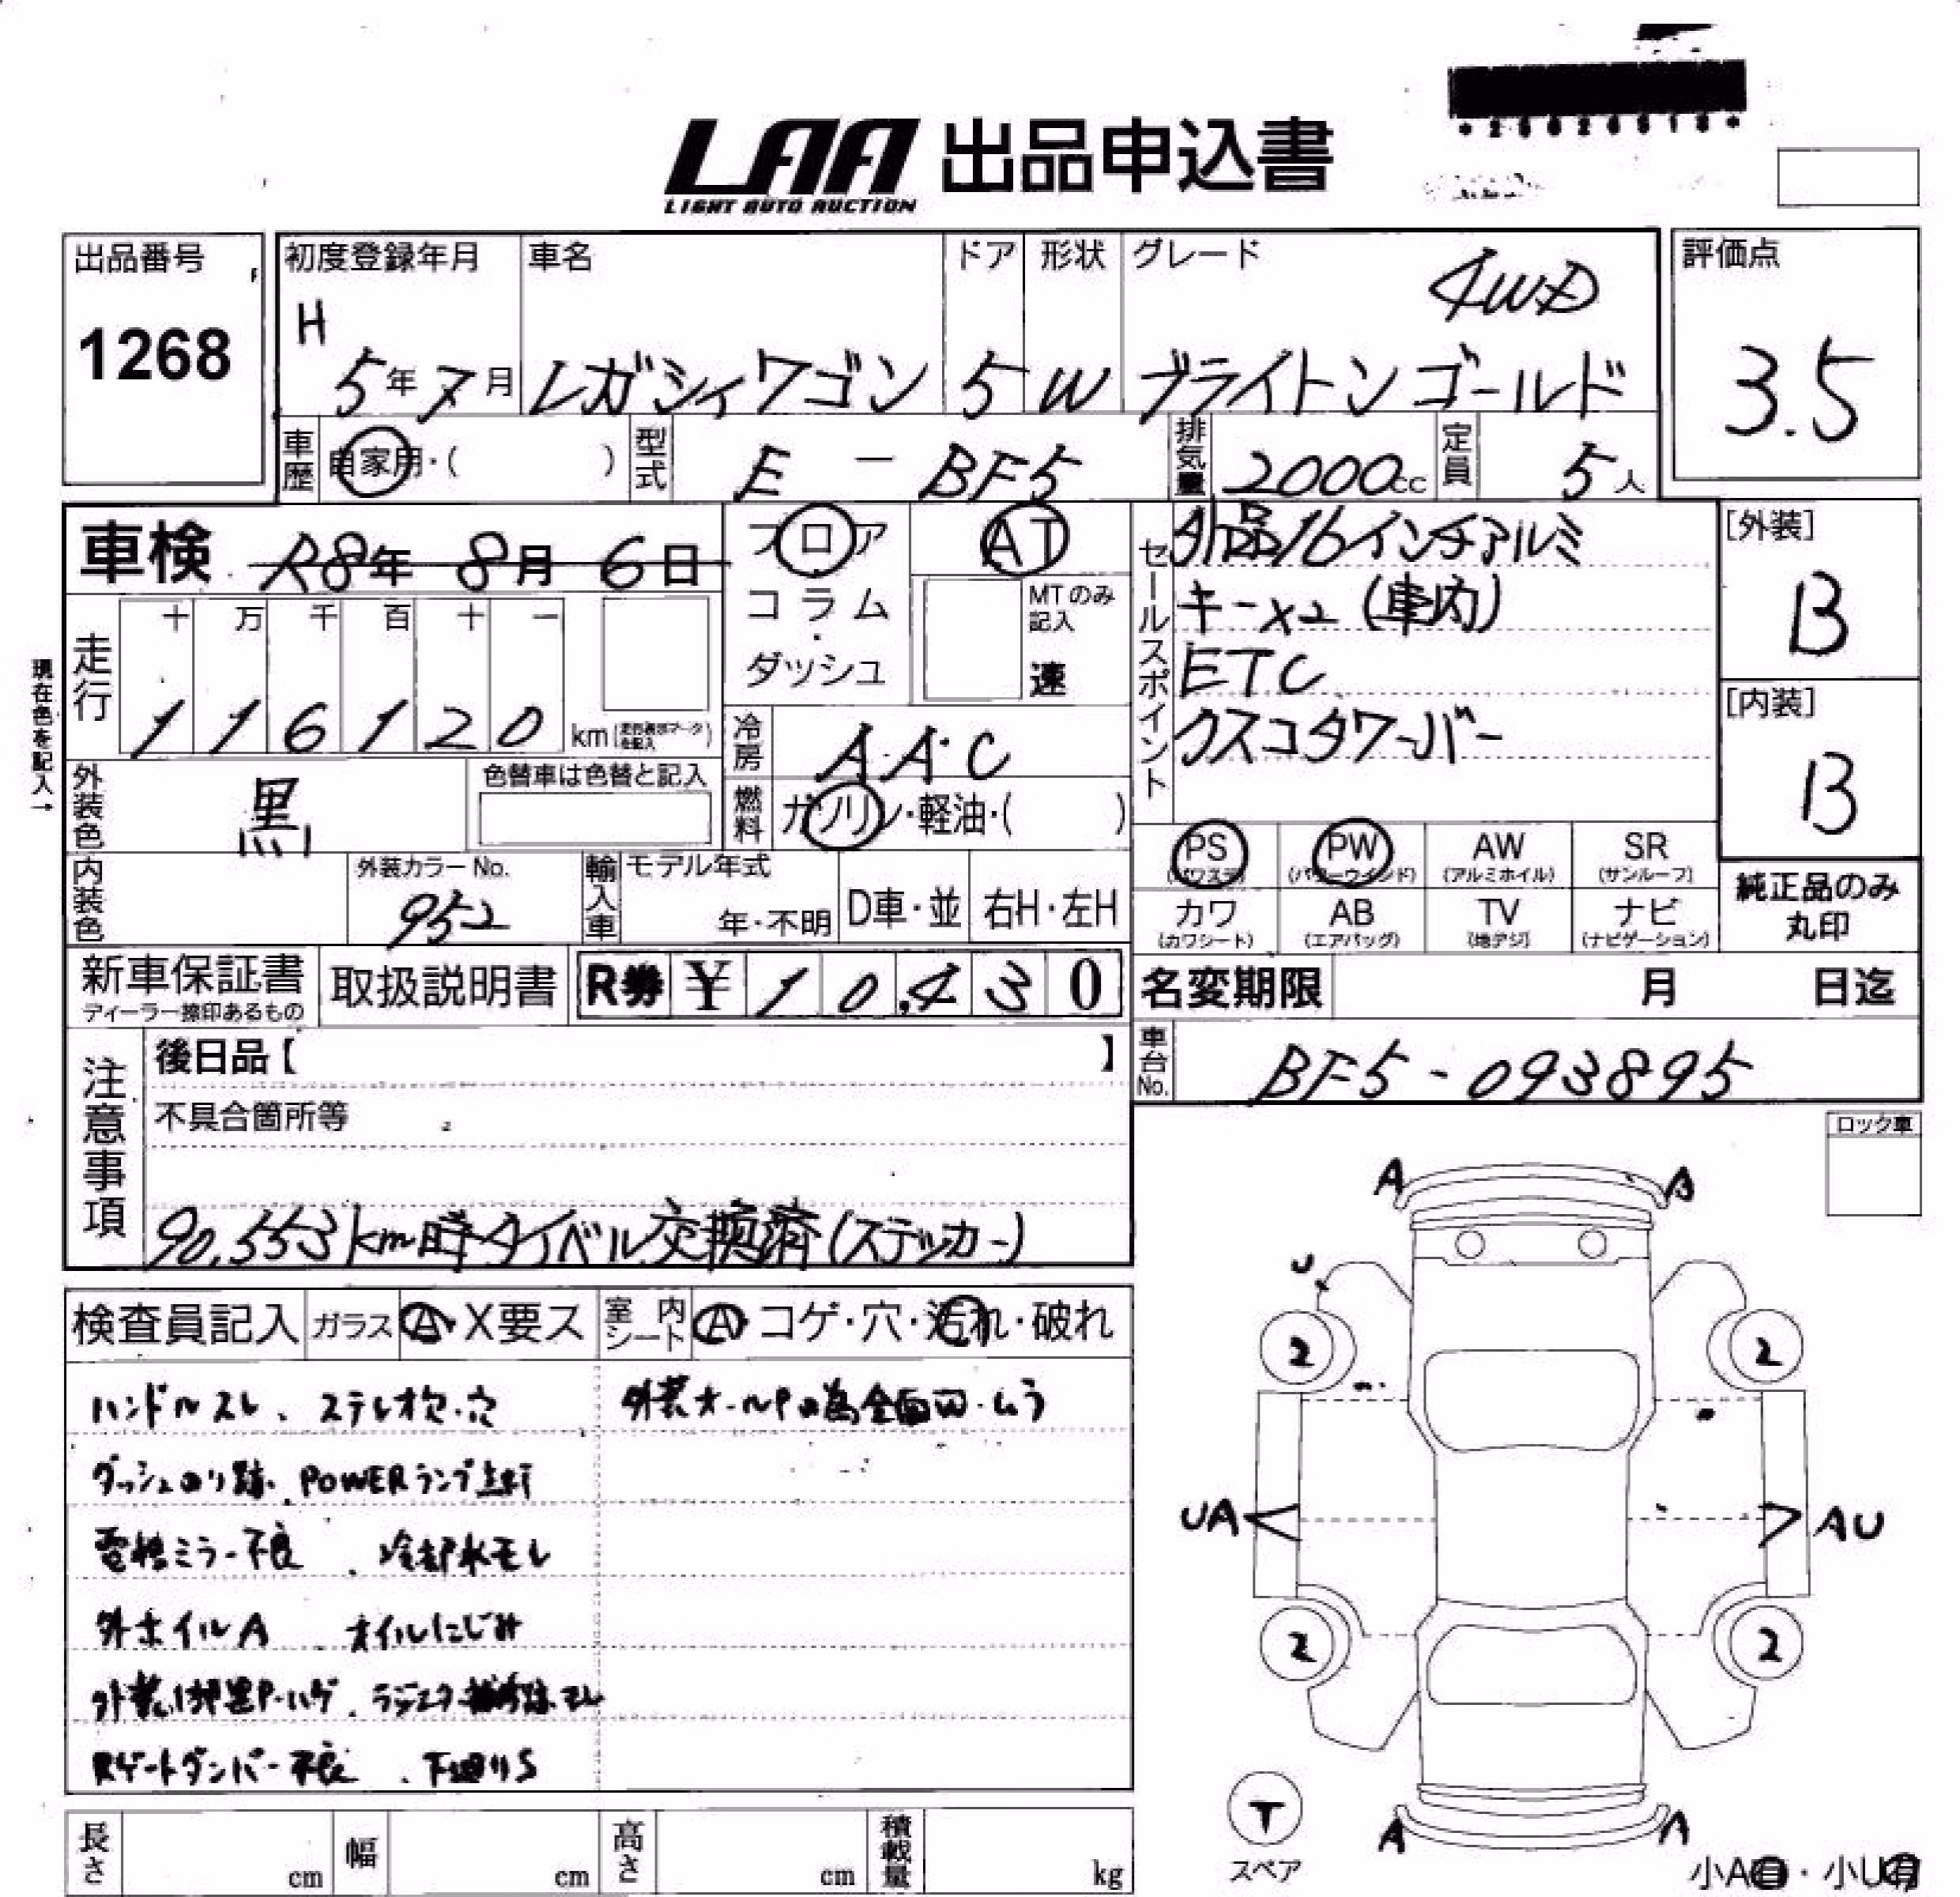 LAA 出品申込書
LIGHT AUTO AUCTION
出品番号
1268
初度登録年月
H
5年7月
車名
レガシィワゴン
ドア
5
形状
W
グレード
4WD
ブライトンゴールド
評価点
3.5
車歴
自家用・( )
型式
E - BF5
排気量
2000cc
定員
5人
車検
R8年 8月 6日
フロア
コラム
・
ダッシュ
AT
MTのみ
記入
速
セールスポイント
外品16インチアルミ
キーx2 (車内)
ETC
クスコタワーバー
[外装]
B
[内装]
B
現在色を記入→
走行
十 万 千 百 十 一
1 1 6 1 2 0 km
冷房
A・A・C
燃料
ガソリン・軽油・( )
外装色
黒
色替車は色替と記入
内装色
外装カラーNo.
952
輸入車
モデル年式
年・不明
D車・並
右H・左H
PS
(パワステ)
PW
(パワーウインド)
AW
(アルミホイル)
SR
(サンルーフ)
カワ
(カワシート)
AB
(エアバッグ)
TV
(地デジ)
ナビ
(ナビゲーション)
純正品のみ
丸印
新車保証書
ディーラー捺印あるもの
取扱説明書
R券 ¥ 10,430
名変期限 月 日迄
車台No.
BF5-093895
注意事項
後日品【 】
不具合箇所等
90,553km時タイベル交換済(ステッカー)
ロック車
検査員記入
ガラス
A・X要ス
室内シート
A・コゲ・穴・汚れ・破れ
ハンドルスレ、ステレオ欠・穴
外装オールPの為全面凹・ムラ
ダッシュのり跡、POWERランプ点灯
電格ミラー不良、冷却水モレ
外ホイルA、オイルにじみ
外装P・ハゲ、ラジエター補修跡・モレ
Rゲートダンパー不良、下廻りS
A
A
U
2
2
UA
AU
2
2
T
スペア
A
A
小A有・小U有
長さ cm
幅 cm
高さ cm
積載量 kg